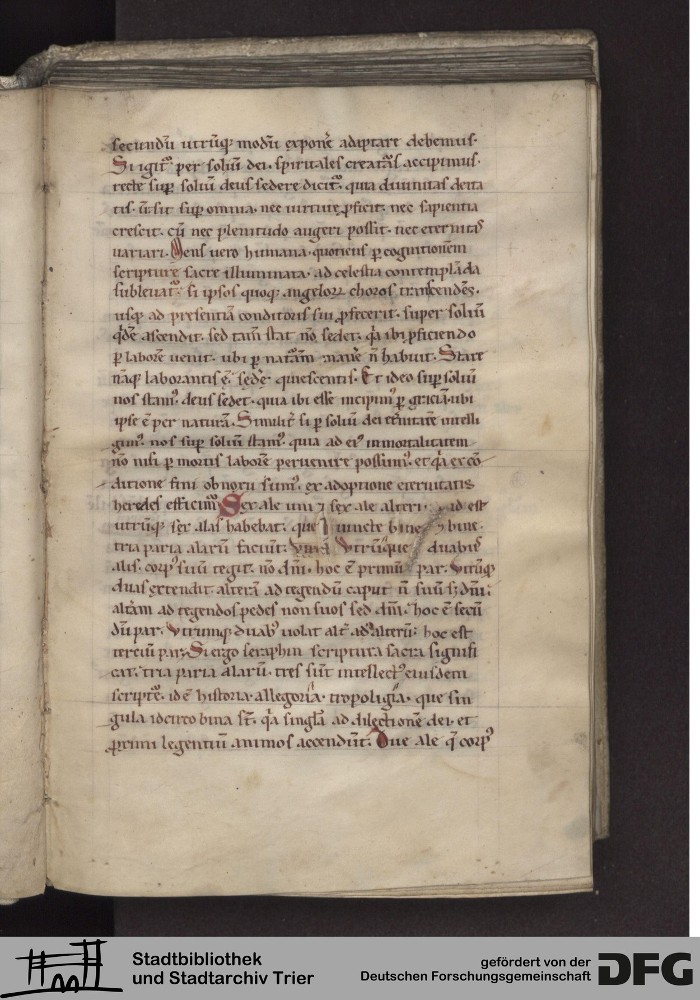 secundū utrūq; modū exponē adaptare debemus.
Si igit᷑ per soliū dei. spiritales creat᷑as accipimus.
recte sup soliū deus sedere dicit᷑. quia diuinitas deita
tis. ū sit sup omnia. nec uirtute ꝓficit. nec sapientia
crescit. cū nec plenitudo augeri possit. nec eternitas
uariari. Mens uero humana. quotiens ꝑ cognitionem
scripturę sacre illuminata. ad celestia contemplāda
subleuat᷑. si ipsos quoq; angeloꝝ choros transcendēs.
usq; ad presentiā conditoris sui ꝓfecerit. super soliū
q̇dē ascendit. sed tam̄ stat nō sedet. q̇a ibi ꝓficiendo
ꝑ laborē uenit. ubi ꝑ nat᷑am manē n̄ habuit. Stare
nāq; laborantis ē. sedē quiescentis. Et ideo sup soliū
nos stam᷒. deus sedet. quia ibi esse incipim᷒ ꝑ gr̄ciā. ubi
ipse ē per naturā. Similit̄ si ꝑ soliū dei et̄nitatē intelli
gim᷒. nos sup soliū stam᷒. quia ad ei᷒ inmortalitatem
nō nisi ꝑ mortis laborē peruenire possum᷒. et q̇a ex cō
ditione fini obnoxii sum᷒. ex adoptione eternitatis
heredes efficim᷒. Sex ale uni ⁊ sex ale alteri. id est
utrūq; sex alas habebat. que iuncte bine ⁊ bine.
tria paria alarū faciūt. Utrūque duab᷒
alis. corp᷒ suū tegit. nō dn̄i. hoc ē primū par. Utrūq;
duas extendit. alterā ad tegendū caput n̄ suū s; dn̄i.
altām ad tegendos pedes non suos sed dn̄i. hoc ē secū
dū par. Utrumq; duab᷒ uolat alt̄ ad alterū. hoc est
terciū par. Si ergo seraphin scriptura sacra signifi
cat. tria paria alarū. tres sūt intellect᷒ eiusdem
scriptę. id ē historia. allegoria. tropoligia. que sin
gula idcirco bina st̄. q̇a singła ad dilectionē dei. et
ꝓximi legentiū animos accendūt. Due ale q̄ corp᷒
Stadtbibliothek
und Stadtarchiv Trier
gefördert von der
Deutschen Forschungsgemeinschaft
DFG